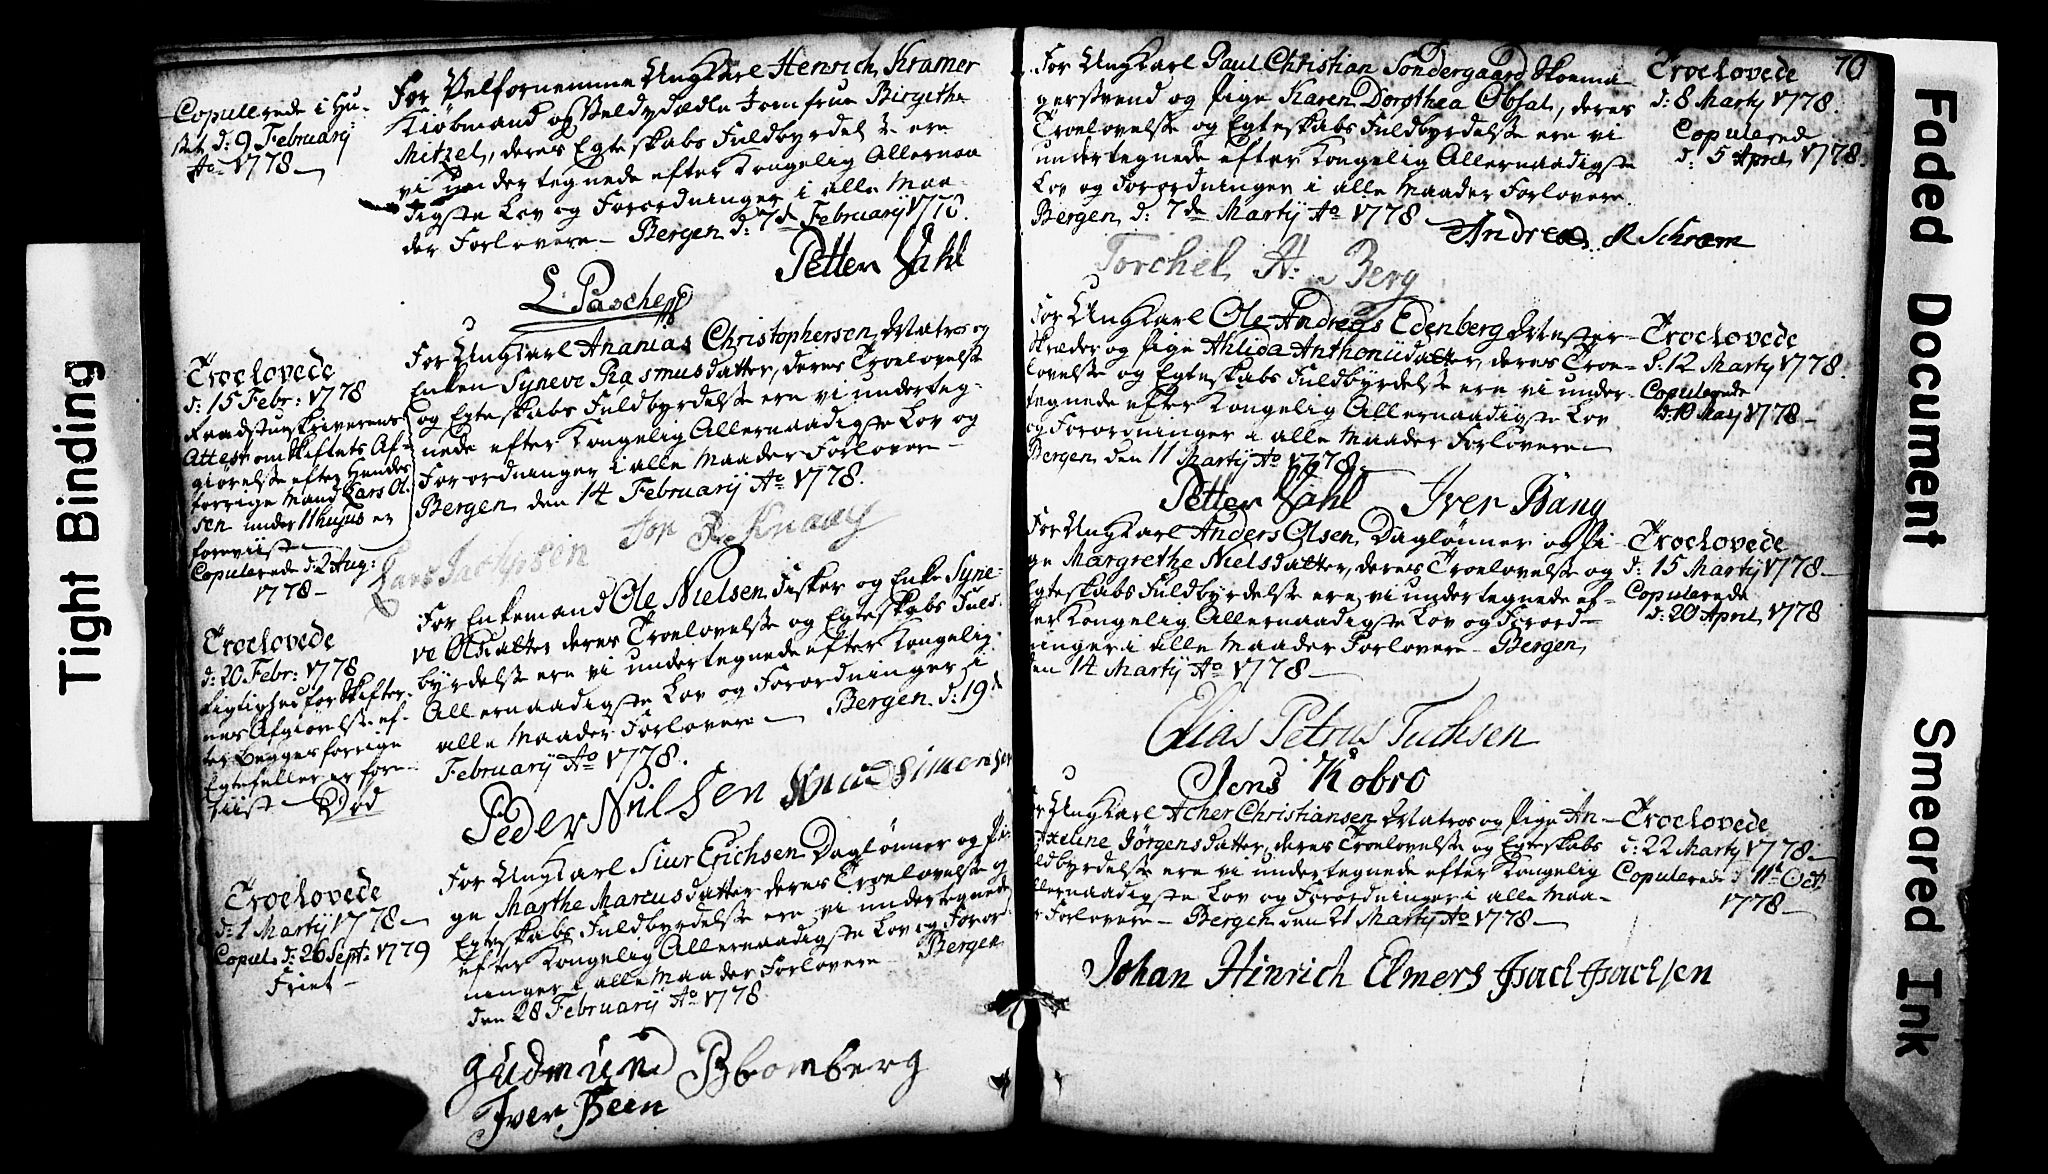 Tight Binding
Copulerede i Hu-
set d: 9 February
Ao 1778
For Velfornemme Ung Karl Henrich Kramer
Kiöbmand og Veldydædle Jomfrue Birgithe
Mitzel, deres Egteskabs Fuldbyrdelse ere
vi undertegnede efter Kongelig Allernaa
digste Lov og Forordninger i alle Maa-
der Forlovere - Bergen d: 7de February 1778.
Petter Dahl
L: Pasche
Troelovede
d: 15 Febr: 1778
Attest om Skiftets Af-
giörelse efter hendes
forrige Mand Lars Ol-
sen under 11 hujus er
foreviist
Copulerede d: 2 Aug:
1778
For Ung Karl Ananias Christophersen Matros og
Enken Syneve Rasmusdatter, deres Troelovelse
og Egteskabs Fuldbyrdelse ere vi underteg-
nede efter Kongelig Allernaadigste Lov og
Forordninger i alle Maader Forlovere
Bergen den 14 February Ao 1778.
Troelovede
d: 20 Febr: 1778
Rigtighed for Skifter-
nes Afgiörelse ef-
ter begges forrige
Egtefeller er fore-
viist - Död
For Enkemand Ole Nielsen Fisker og Enke Syne-
ve Olsdatter deres Troelovelse og Egteskabs Fuld-
byrdelse ere vi undertegnede efter Kongelig
Allernaadigste Lov og Forordninger i
alle Maader Forlovere - Bergen d: 19de
February Ao 1778.
Peder Nilsen Knud Simonsen
Troelovede
d: 1 Martij 1778
Copul. d: 26 Sept: 1779
Friet
For Ung Karl Siur Erichsen Daglønner og Pi-
ge Marthe Marcusdatter deres Troelovelse og
Egteskabs Fuldbyrdelse ere vi undertegnede
efter Kongelig Allernaadigste Lov og Foror-
ninger i alle Maader Forlovere - Bergen
den 28 February Ao 1778.
Gudmund Blomberg
Iver Been
70
For Ung Karl Paul Christian Söndergaard Skoema-
gersvend og Pige Karen Dorothea Obsal, deres
Troelovelse og Egteskabs Fuldbyrdelse ere vi
undertegnede efter Kongelig Allernaadigste
Lov og Forordninger i alle Maader Forlovere.
Bergen d: 7de Martij Ao 1778
Andreas R Schrøm
Torchel A: Berg
Troelovede
d: 8 Martij 1778.
Copulered
d: 5 April 1778.
For Ung Karl Ole Andreas Edenberg Mester
Skreder og Pige Ahlida Anthoniidatter, deres Troe-
lovelse og Egteskabs Fuldbyrdelse ere vi under-
tegnede efter Kongelig Allernaadigste Lov
og Forordninger i alle Maader Forlovere
Bergen den 11 Martij Ao 1778.
Petter Dahl Iver Bang
Troelovede
d: 12 Martij 1778.
Copulerede
d: 10 May 1778
For Ung Karl Anders Olsen Daglønner og Pi-
ge Margrethe Nielsdatter, deres Troelovelse og
Egteskabs Fuldbyrdelse ere vi undertegnede ef-
ter Kongelig Allernaadigste Lov og Forord-
ninger i alle Maader Forlovere - Bergen
den 14 Martij Ao 1778
Elias Petrus Tuchsen
Jens Kobro
Troelovede
d: 15 Martij 1778
Copulerede
d: 20 April 1778
For Ung Karl Acher Christiansen Matros og Pige An-
Jörgensdatter, deres Troelovelse og Egteskabs
Fuldbyrdelse ere vi undertegnede efter Kongelig
Allernaadigste Lov og Forordninger i alle Maa-
der Forlovere - Bergen den 21 Martij Ao 1778
Johan Hinrich Elmers Isach Isachsen
Troelovede
d: 22 Martij 1778
Copulerede d: 11t Oct.
1778
Faded Document
Smeared Ink